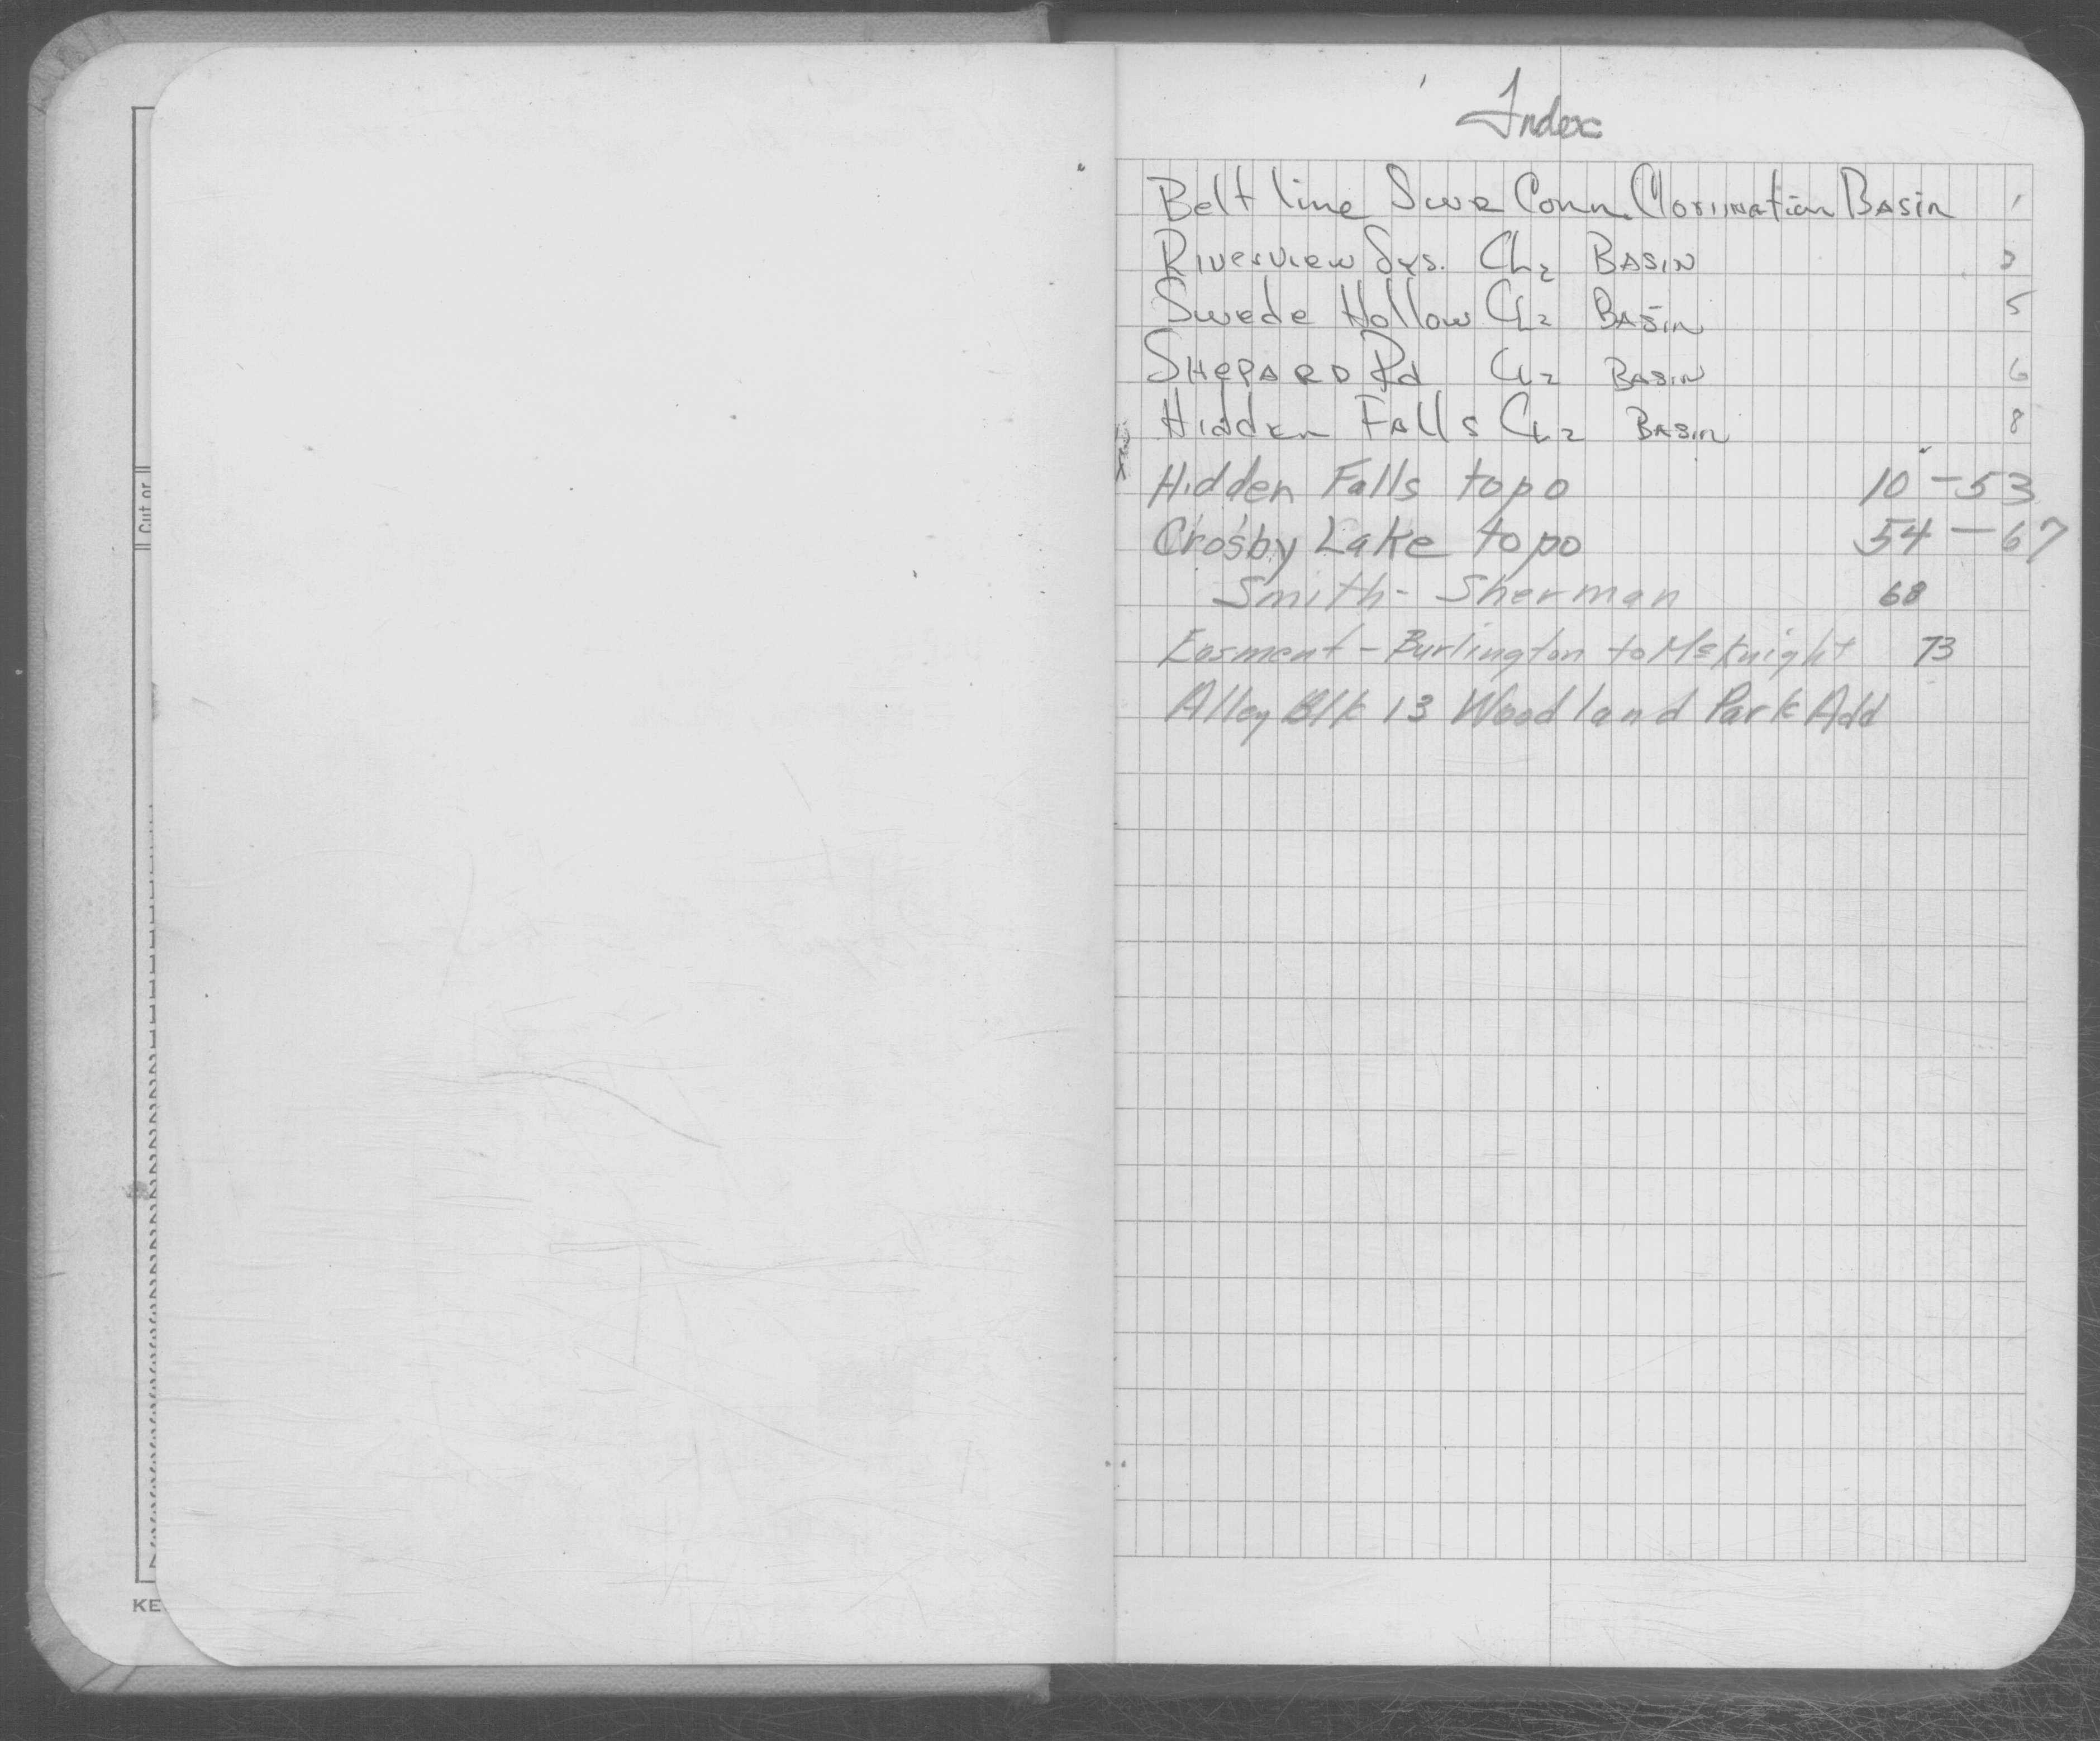 Index
Belt line Swr Conn. Clorination Basin 1
Riverview Sys. CL2 BASIN 3
Swede Hollow CL2 BASIN 5
SHEPARD Rd CL2 BASIN 6
Hidden Falls CL2 BASIN 8
Hidden Falls topo 10-53
Crosby Lake topo 54-67
Smith- Sherman 68
Easment - Burlington to McKnight 73
Alley Blk 13 Woodland Park Add
Cut or
KE